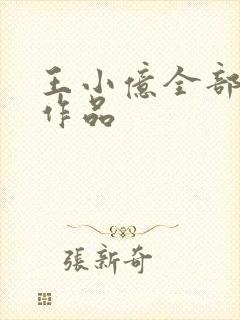 王小億全部
作品
張新奇